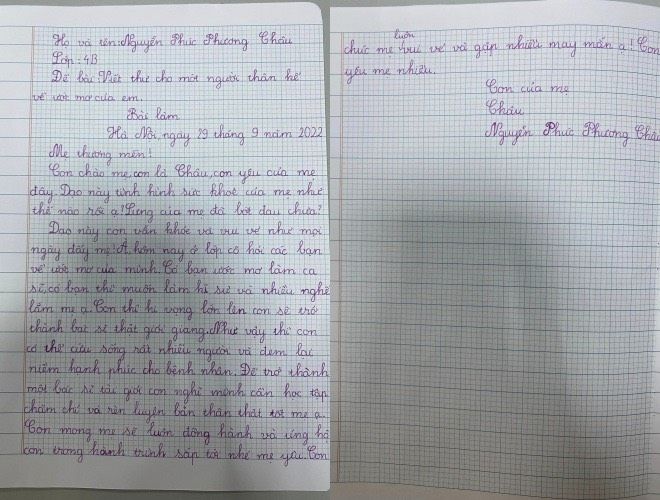 Họ và tên: Nguyễn Phúc Phương Châu
Lớp: 4B
Đề bài: Viết thư cho một người thân kể
về ước mơ của em.
Bài làm
Hà Nội, ngày 29 tháng 9 năm 2022
Mẹ thương mến!
Con chào mẹ, con là Châu, con yêu của mẹ
đây. Dạo này tình hình sức khoẻ của mẹ như
thế nào rồi ạ? Lưng của mẹ đã bớt đau chưa?
Dạo này con vẫn khoẻ và vui vẻ như mọi
ngày đấy mẹ! À, hôm nay ở lớp cô hỏi các bạn
về ước mơ của mình. Có bạn ước mơ làm ca
sĩ, có bạn thì muốn làm kĩ sư và nhiều nghề
lắm mẹ ạ. Con thì hi vọng lớn lên con sẽ trở
thành bác sĩ thật giỏi giang. Như vậy thì con
có thể cứu sống rất nhiều người và đem lại
niềm hạnh phúc cho bệnh nhân. Để trở thành
một bác sĩ tài giỏi con nghĩ mình cần học tập
chăm chỉ và rèn luyện bản thân thật tốt mẹ ạ.
Con mong mẹ sẽ luôn đồng hành và ủng hộ
con trong hành trình sắp tới nhé mẹ yêu. Con
chúc mẹ luôn vui vẻ và gặp nhiều may mắn ạ! Con
yêu mẹ nhiều.
Con của mẹ
Châu
Nguyễn Phúc Phương Châu